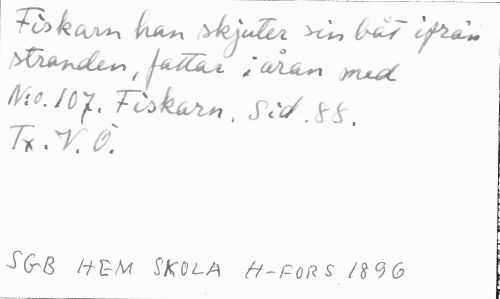 Fiskarn han skjuter sin båt ifrån
stranden, fattar i åran med
N:o. 107. Fiskarn. Sid. 88.
Tx. V. Ö.
SGB HEM SKOLA H-FORS 1896